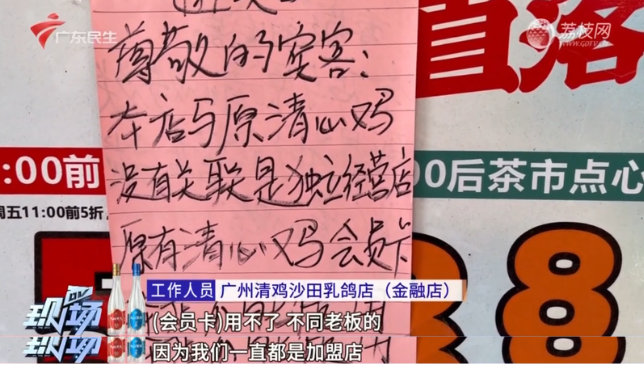 广东民生
荔枝网
尊敬的宾客：
本店与原清心鸡
没有关联是独立经营店
原有清心鸡会员卡
直落
:00前
00后茶市点心
周五11:00前5折
8
DV现场
工作人员 广州清鸡沙田乳鸽店（金融店）
(会员卡)用不了 不同老板的
现场
因为我们一直都是加盟店